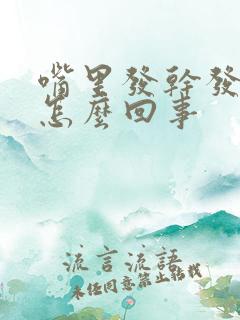 嘴里發幹發
怎麼回事
流言流語
未经同意禁止转载